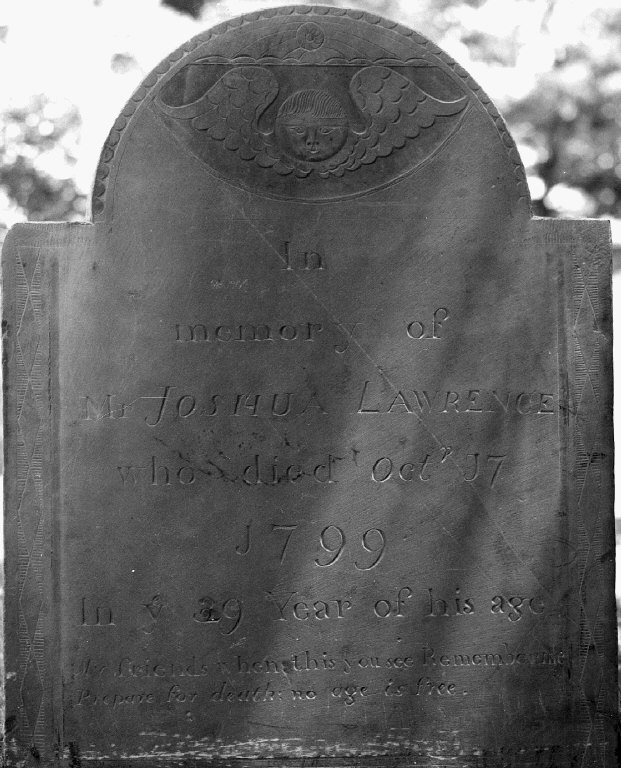 In
memory of
Mr JOSHUA LAWRENCE
who died Octr 17
1799
In ye 29 Year of his age
My friends when this you see Remember me
Prepare for death no age is free.